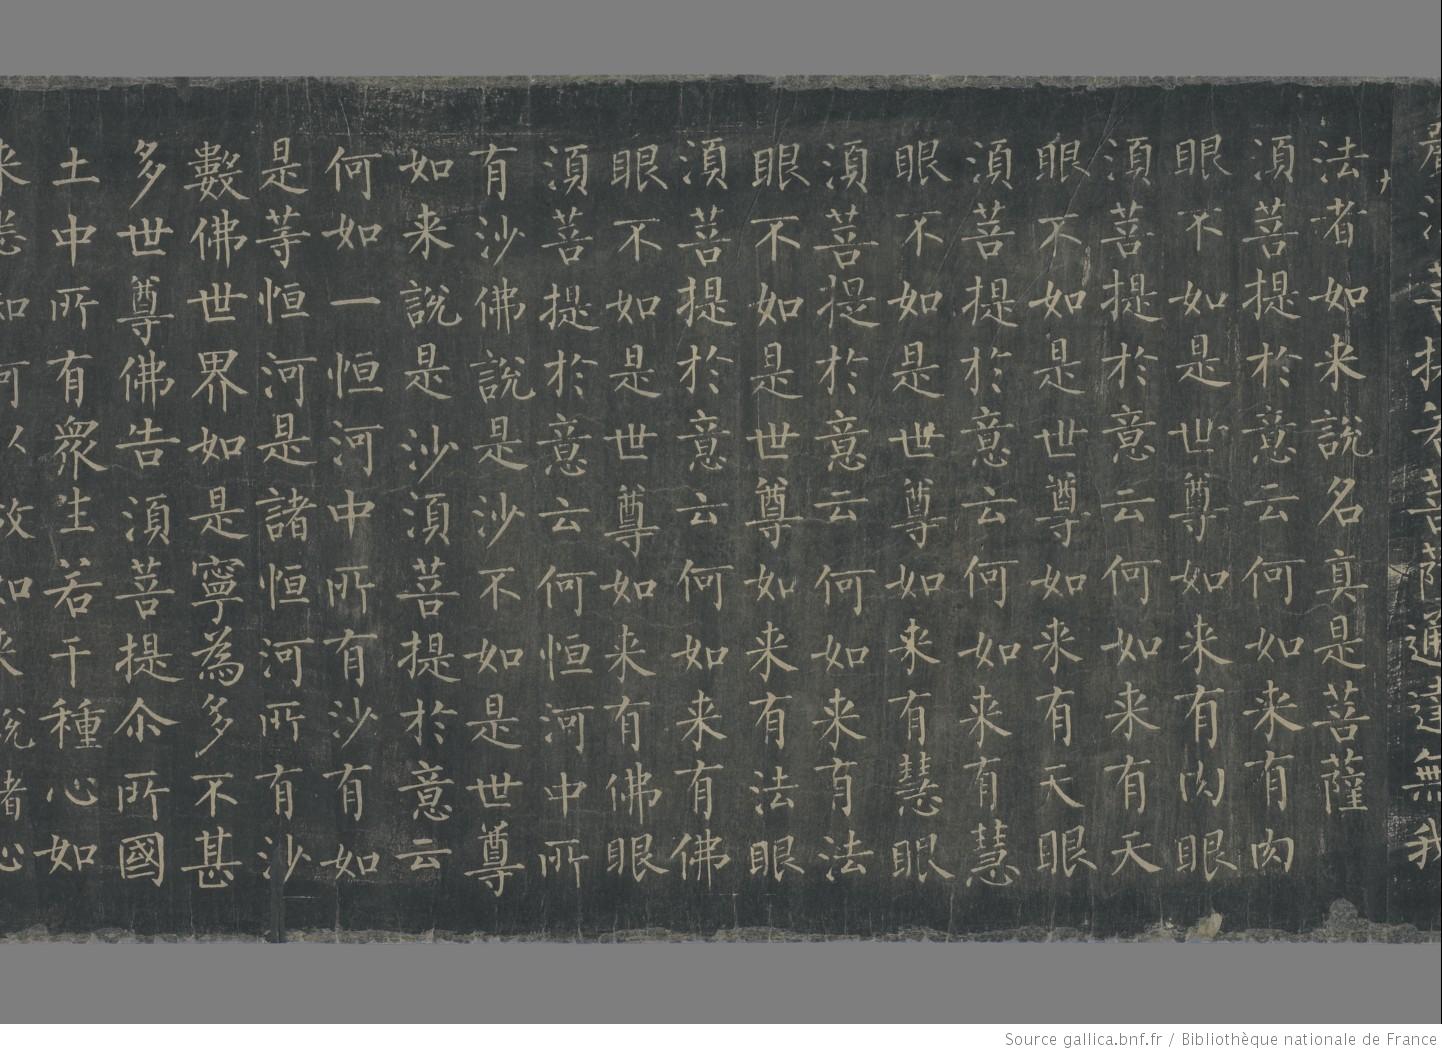 須菩提若菩薩通達無我
法者如来說名真是菩薩
須菩提於意云何如来有肉
眼不如是世尊如来有肉眼
須菩提於意云何如来有天
眼不如是世尊如来有天眼
須菩提於意云何如来有慧
眼不如是世尊如来有慧眼
須菩提於意云何如来有法
眼不如是世尊如来有法眼
須菩提於意云何如来有佛
眼不如是世尊如来有佛眼
須菩提於意云何恒河中所
有沙佛說是沙不如是世尊
如来說是沙須菩提於意云
何如一恒河中所有沙有如
是等恒河是諸恒河所有沙
數佛世界如是寧為多不甚
多世尊佛告須菩提尒所國
土中所有衆生若干種心如
来悉知何以故如来說諸心
Source gallica.bnf.fr / Bibliothèque nationale de France